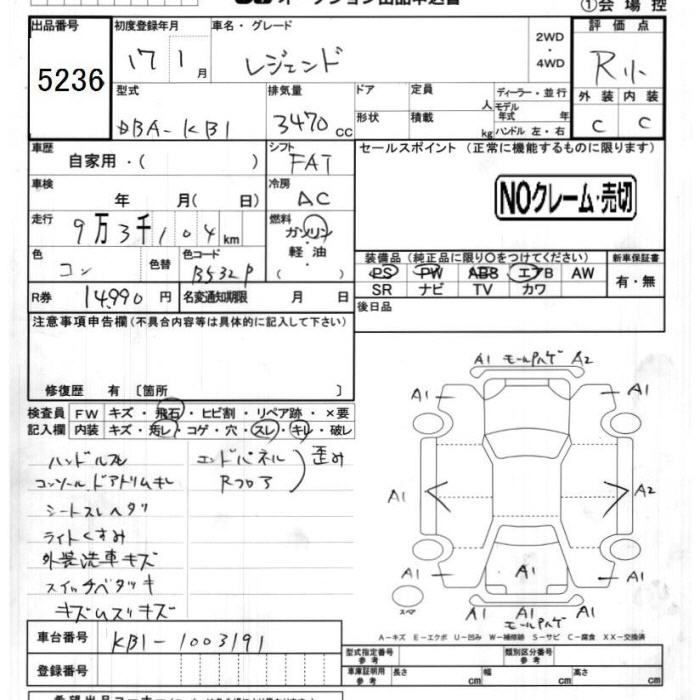 オークション出品申込書
①会場控
出品番号
5236
初度登録年月
17 1 月
車名・グレード
レジェンド
2WD
・
4WD
評価点
R小
外装 内装
C C
型式
DBA-KB1
排気量
3470 CC
ドア
形状
定員
人
積載
kg
ディーラー・並行
モデル
年式 年
ハンドル 左・右
車歴
自家用・( )
シフト
FAT
セールスポイント (正常に機能するものに限ります)
NOクレーム・売切
車検
年 月( 日)
冷房
AC
走行
9万3千104km
燃料
ガソリン
軽・油
( )
色
コン
色替
色コード
B532P
装備品 (純正品に限り○をつけてください)
PS PW ABS エアB AW
SR ナビ TV カワ
新車保証書
有・無
R券
14,990 円
名変通知期限 月 日
後日品
注意事項申告欄(不具合内容等は具体的に記入して下さい)
修復歴 有 〔箇所 〕
検査員
記入欄
FW キズ・飛石・ヒビ割・リペア跡・×要
内装 キズ・汚レ・コゲ・穴・スレ・キレ・破レ
ハンドルスレ
コンソール.ドアトリムキレ
シートスレヘタリ
ライトくすみ
外装洗車キズ
スイッチベタツキ
エンドパネル
Rフロア
歪み
A1 モールハゲ A2
A1 A1
A1 A2
A1 A1 A1
スペア
A1 A1
モールハゲ
A-キズ E-エクボ U-凹み W-補修跡 S-サビ C-腐食 XX-交換済
車台番号
KB1-1003191
登録番号
型式指定番号
参考
類別区分番号
参考
車庫証明用
参考
長さ cm 幅 cm 高さ cm